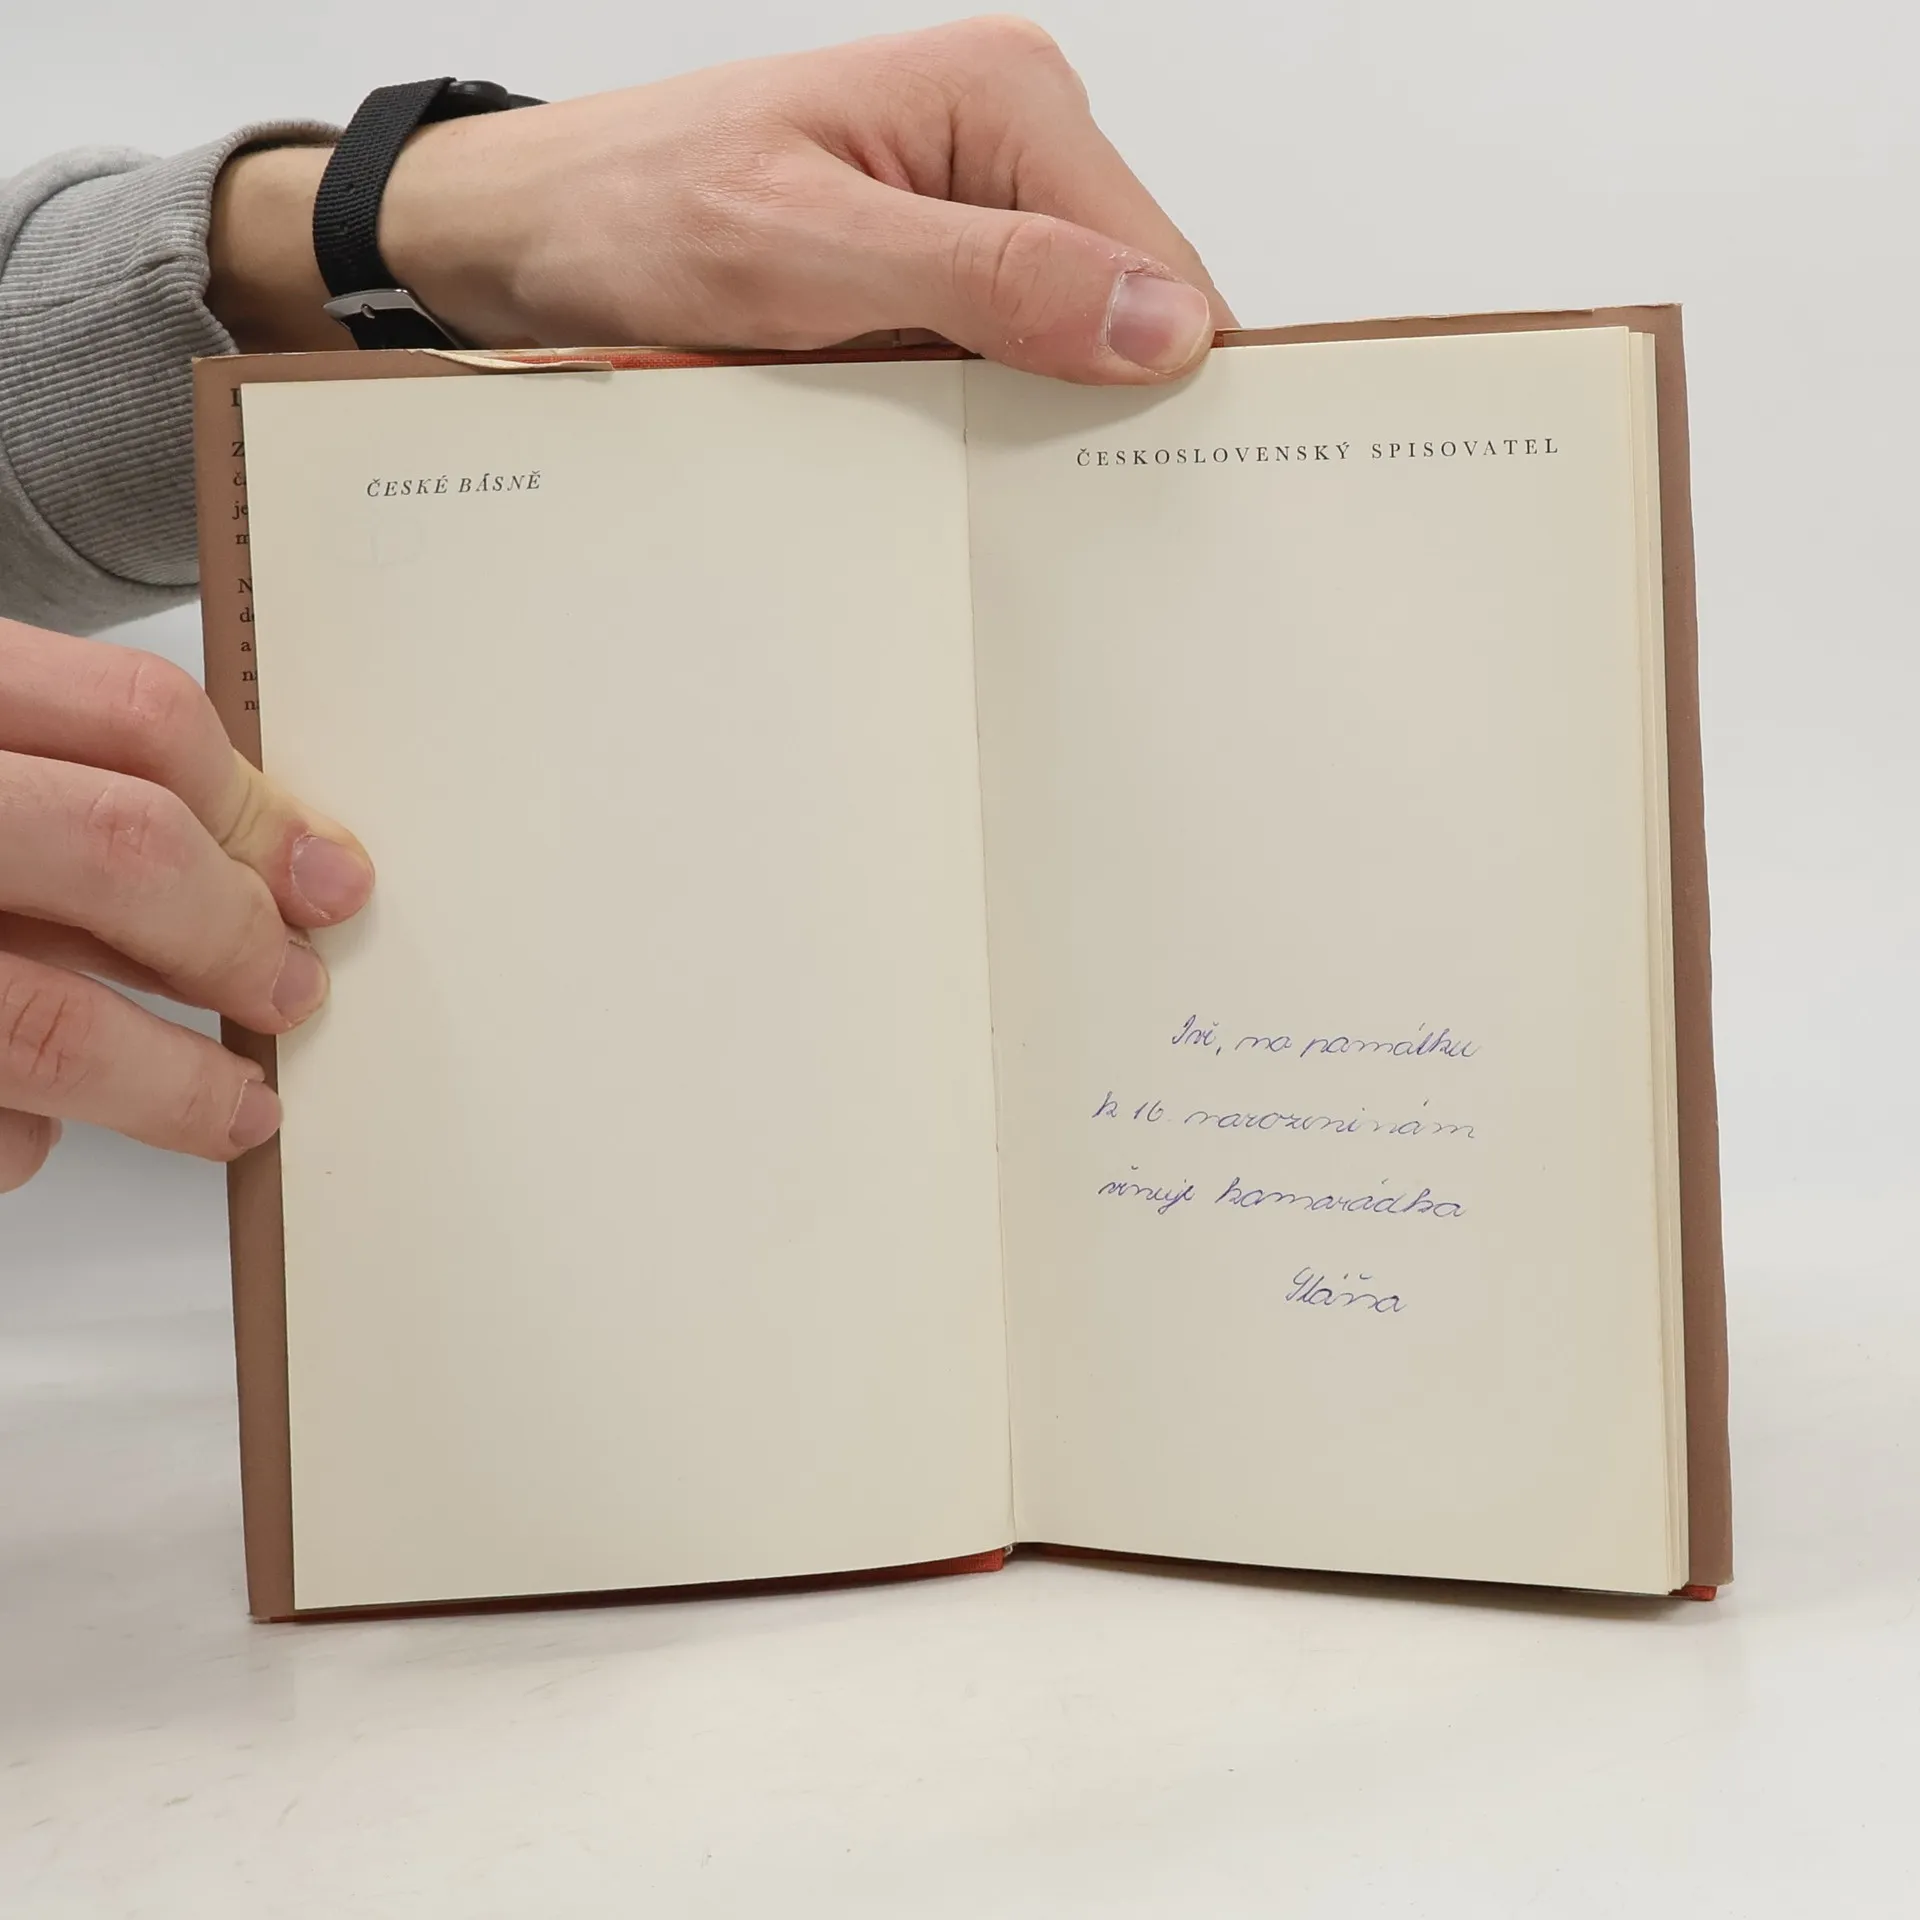 ČESKÉ BÁSNĚ
ČESKOSLOVENSKÝ SPISOVATEL
Ivě, na památku
k 16. narozeninám
věnuje kamarádka
Stáňa